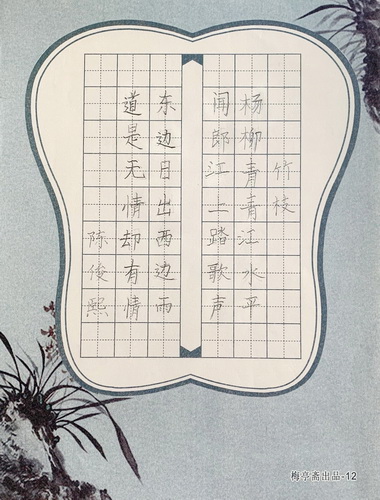 竹枝
杨柳青青江水平
闻郎江上踏歌声
东边日出西边雨
道是无情却有情
陈俊熙
梅亭斋出品-12